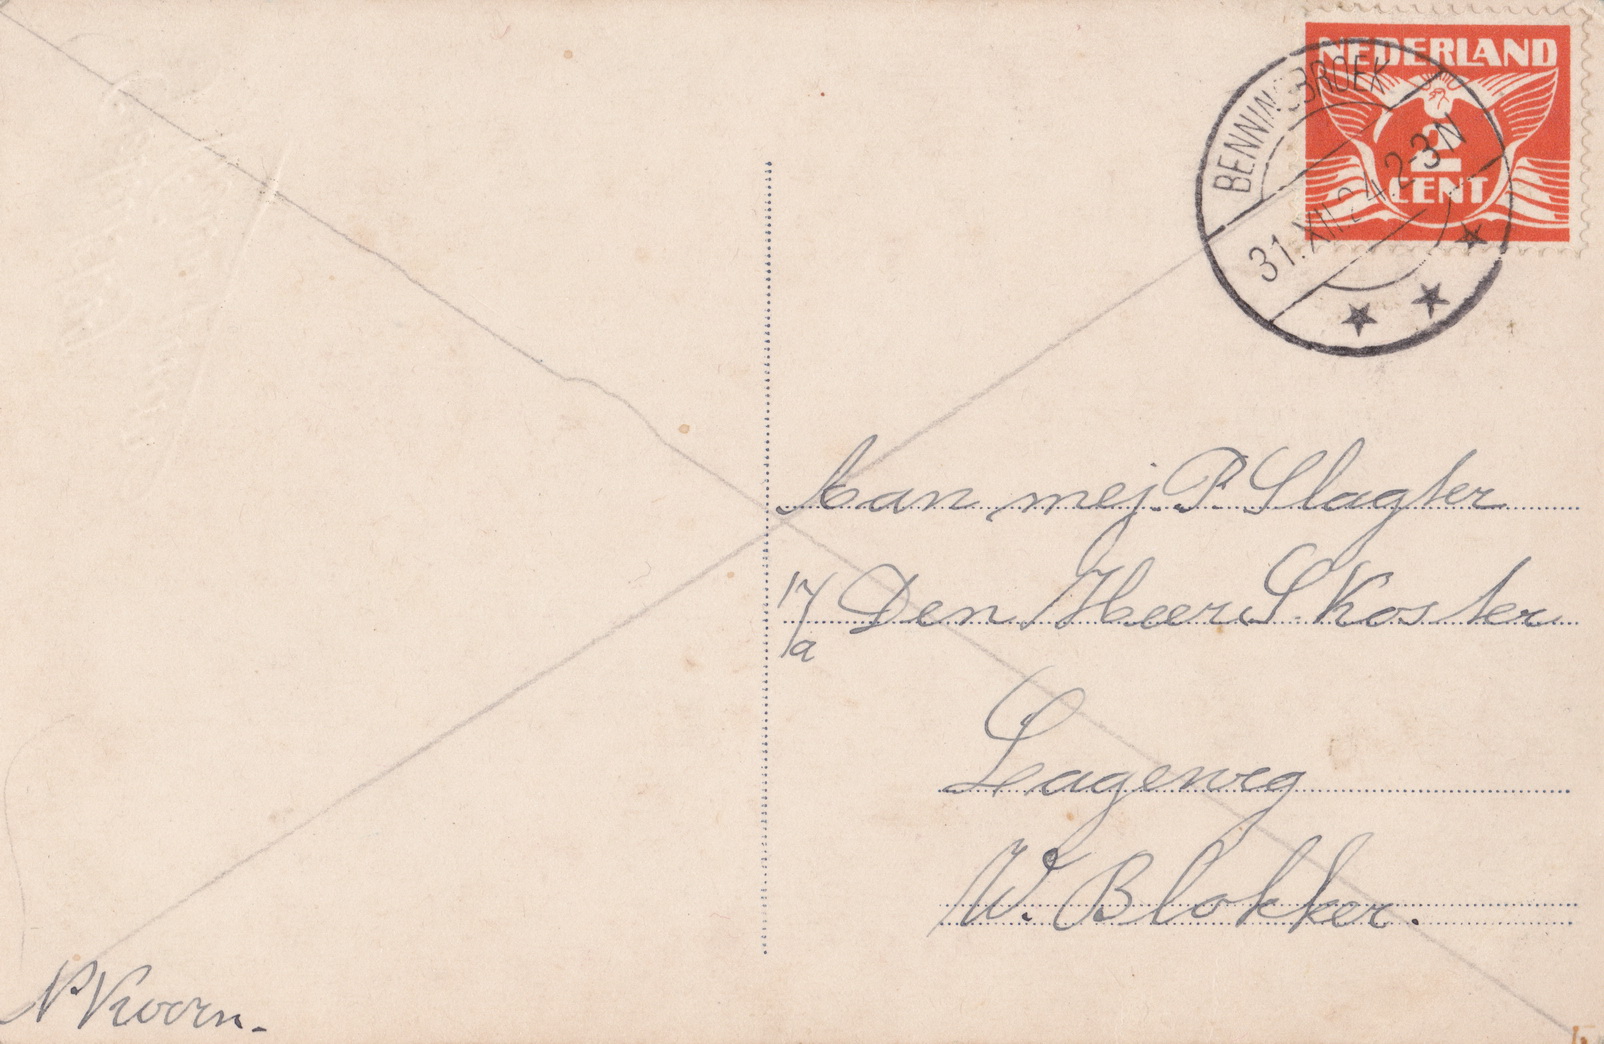 NEDERLAND
2
CENT
BENNINGBROEK
31.XII.24.2-3N
Aan mej. P. Slagter
p/a Den Heer S. Koster
Lageweg
W. Blokker.
N Koorn.